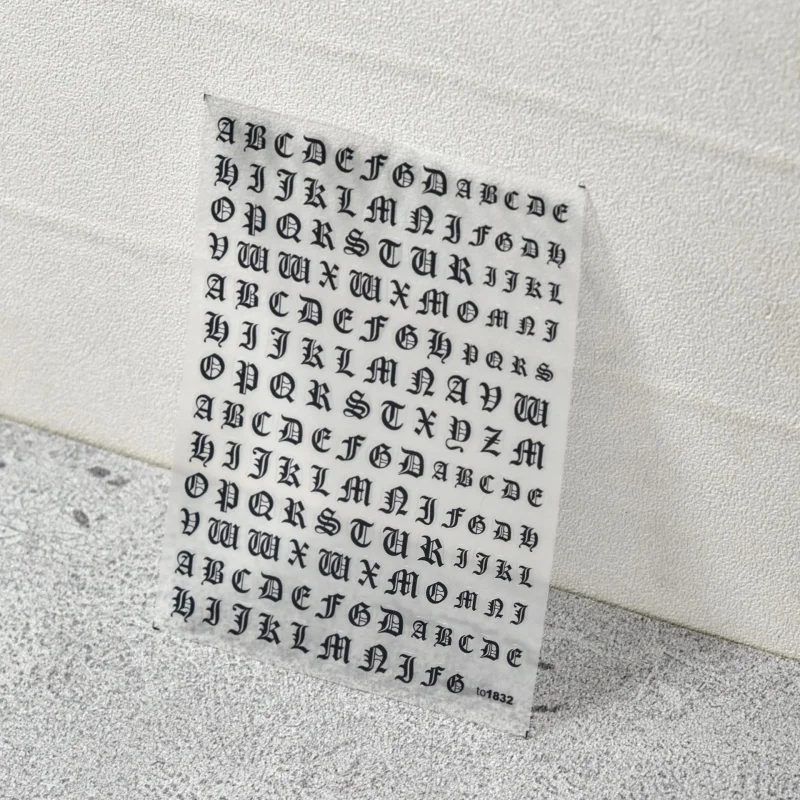 A B C D E F G D A B C D E
H I J K L M N I F G D H
O P Q R S T U R I J K L
V W W X W X M O M N J
A B C D E F G H P Q R S
H I J K L M N A V W
O P Q R S T X Y Z M
A B C D E F G D A B C D E
H I J K L M N I F G D H
O P Q R S T U R I J K L
V W W X W X M O M N J
A B C D E F G D A B C D E
H I J K L M N I F G
to1832